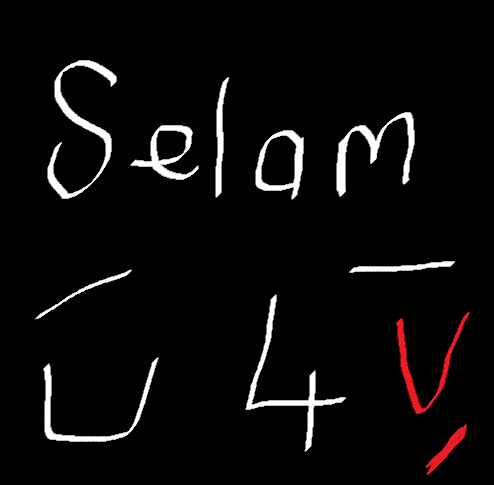 Selam
U 4 V